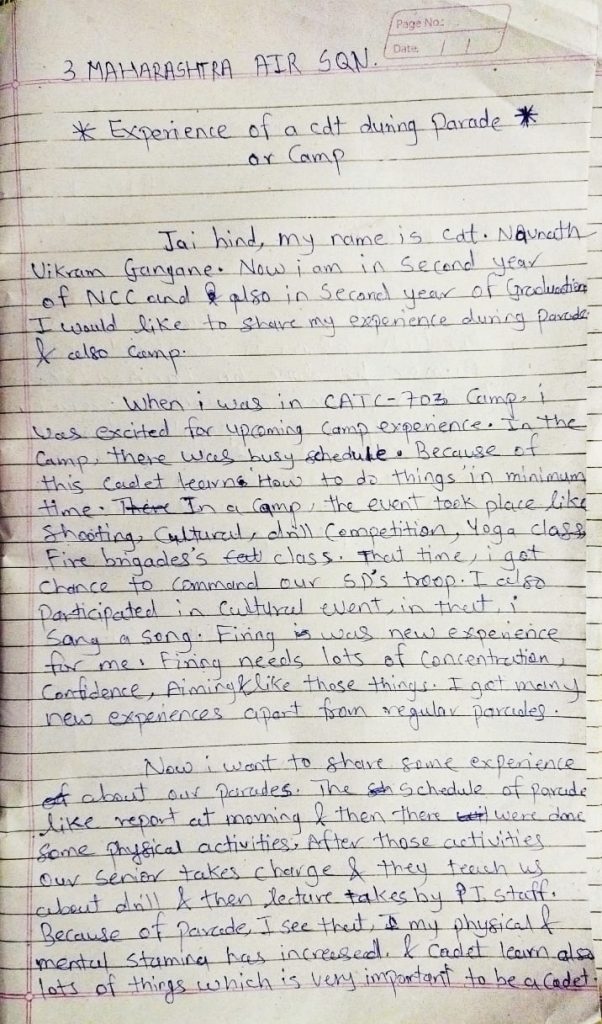 Page No.:
Date: / /
3 MAHARASHTRA AIR SQN.
* Experience of a cdt during Parade *
or Camp
Jai hind, my name is Cdt. Navnath
Vikram Gangane. Now i am in Second year
of NCC and also in Second year of Graduation
I would like to share my experience during Parade
& also Camp.
When i was in CATC-703 Camp, i
was excited for upcoming camp experience. In the
Camp, there was busy schedule. Because of
this Cadet learns How to do things in minimum
time. There In a Camp, the event took place like
Shooting, Cultural, drill Competition, Yoga class
Fire brigades's class. That time, i got
chance to command our SD's troop. I also
Participated in Cultural event, in that, i
Sang a song. Firing is was new experience
for me. Firing needs lots of Concentration,
Confidence, Aiming & like those things. I got many
new experiences apart from regular parades.
Now i want to share some experience
of about our Parades. The sh schedule of parade
like report at morning & then there were done
Some physical activities. After those activities
our Senior takes charge & they teach us
about drill & then lecture takes by P I staff.
Because of Parade, I see that, I my physical &
mental stamina has increased. & Cadet learn also
lots of things which is very important to be a Cadet.